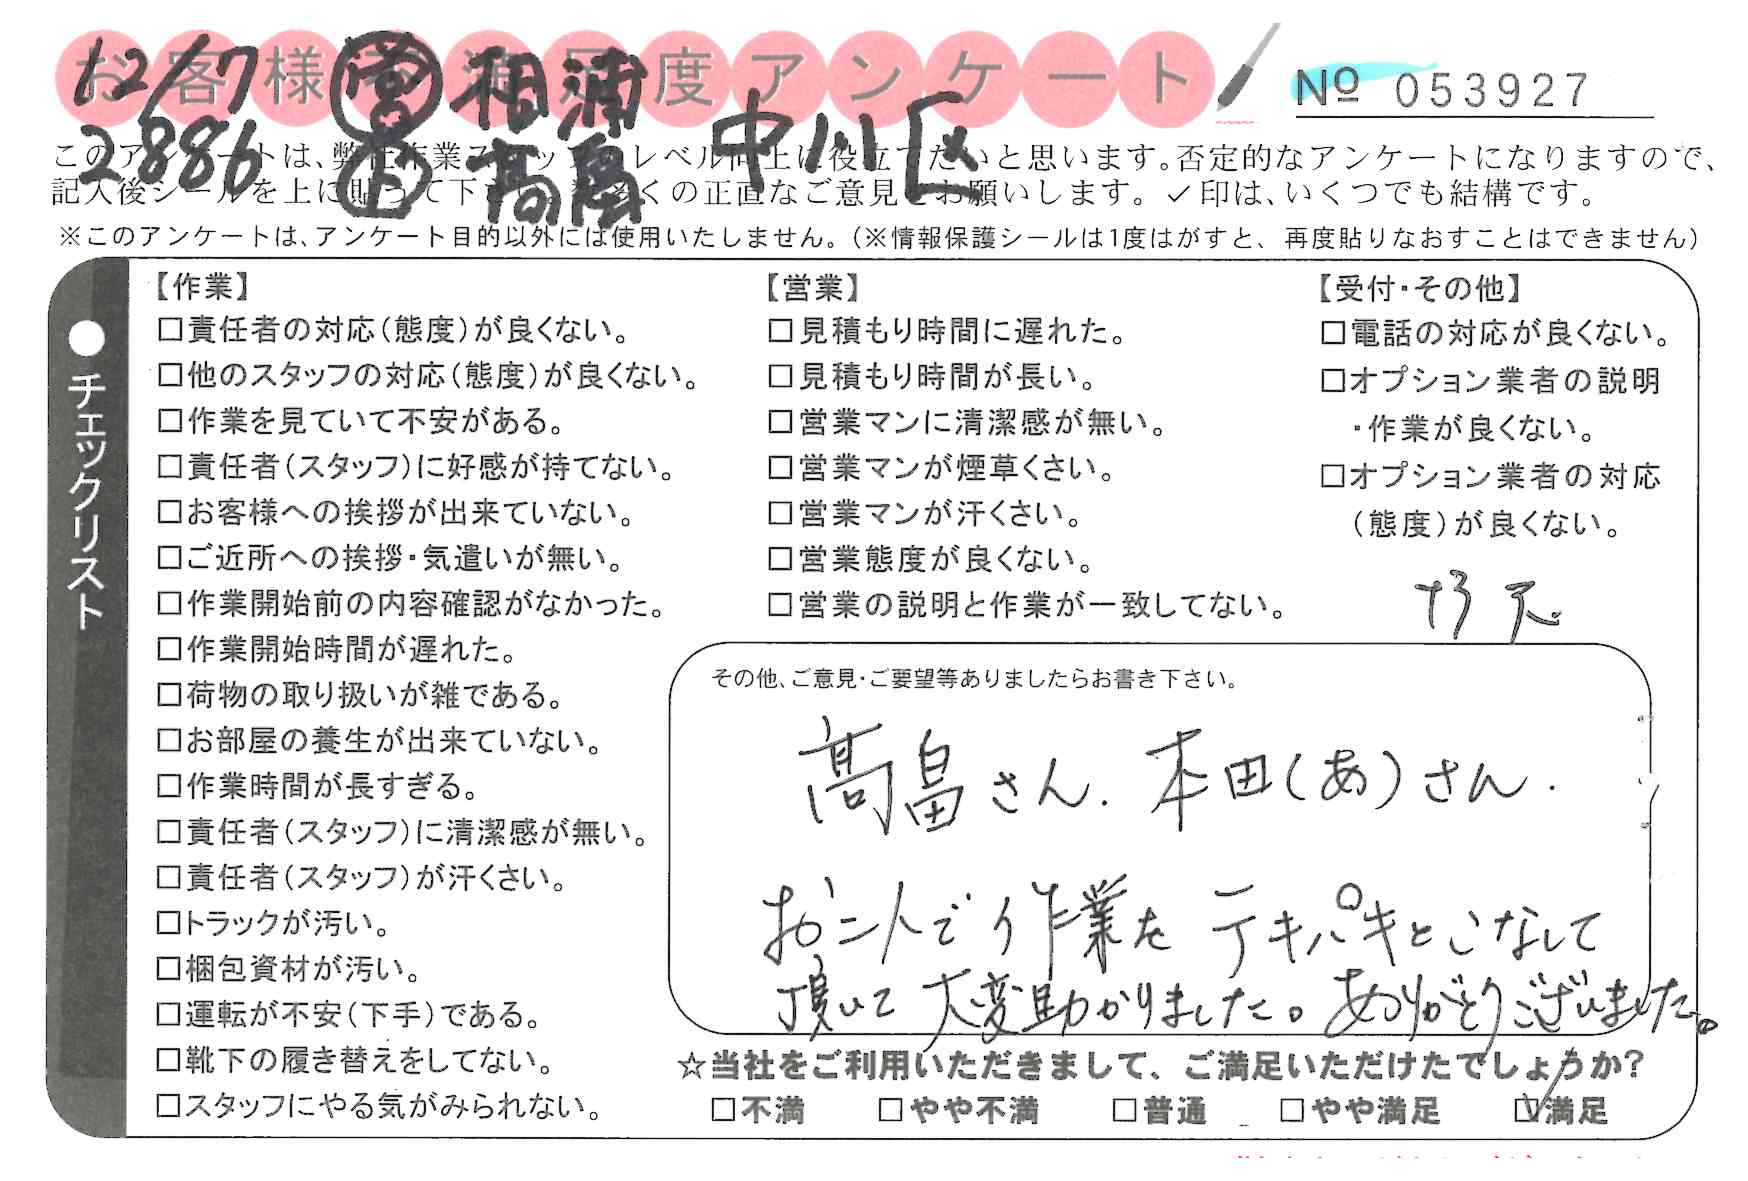 お客様不満足度アンケート
12/7 ㊡ 相浦
2886 ㊤ 高畠 中川区
No 053927
このアンケートは、弊社作業スタッフのレベル向上に役立てたいと思います。否定的なアンケートになりますので、
記入後シールを上に貼って下さい。数多くの正直なご意見をお願いします。✓印は、いくつでも結構です。
※このアンケートは、アンケート目的以外には使用いたしません。(※情報保護シールは1度はがすと、再度貼りなおすことはできません)
●チェックリスト
【作業】
□責任者の対応(態度)が良くない。
□他のスタッフの対応(態度)が良くない。
□作業を見ていて不安がある。
□責任者(スタッフ)に好感が持てない。
□お客様への挨拶が出来ていない。
□ご近所への挨拶・気遣いが無い。
□作業開始前の内容確認がなかった。
□作業開始時間が遅れた。
□荷物の取り扱いが雑である。
□お部屋の養生が出来ていない。
□作業時間が長すぎる。
□責任者(スタッフ)に清潔感が無い。
□責任者(スタッフ)が汗くさい。
□トラックが汚い。
□梱包資材が汚い。
□運転が不安(下手)である。
□靴下の履き替えをしてない。
□スタッフにやる気がみられない。
【営業】
□見積もり時間に遅れた。
□見積もり時間が長い。
□営業マンに清潔感が無い。
□営業マンが煙草くさい。
□営業マンが汗くさい。
□営業態度が良くない。
□営業の説明と作業が一致してない。
【受付・その他】
□電話の対応が良くない。
□オプション業者の説明
・作業が良くない。
□オプション業者の対応
(態度)が良くない。
その他、ご意見・ご要望等ありましたらお書き下さい。
髙畠さん. 本田(あ)さん.
お二人で作業を テキパキとこなして
頂いて 大変助かりました。ありがとうございました。
☆当社をご利用いただきまして、ご満足いただけたでしょうか?
□不満 □やや不満 □普通 □やや満足 ☑満足